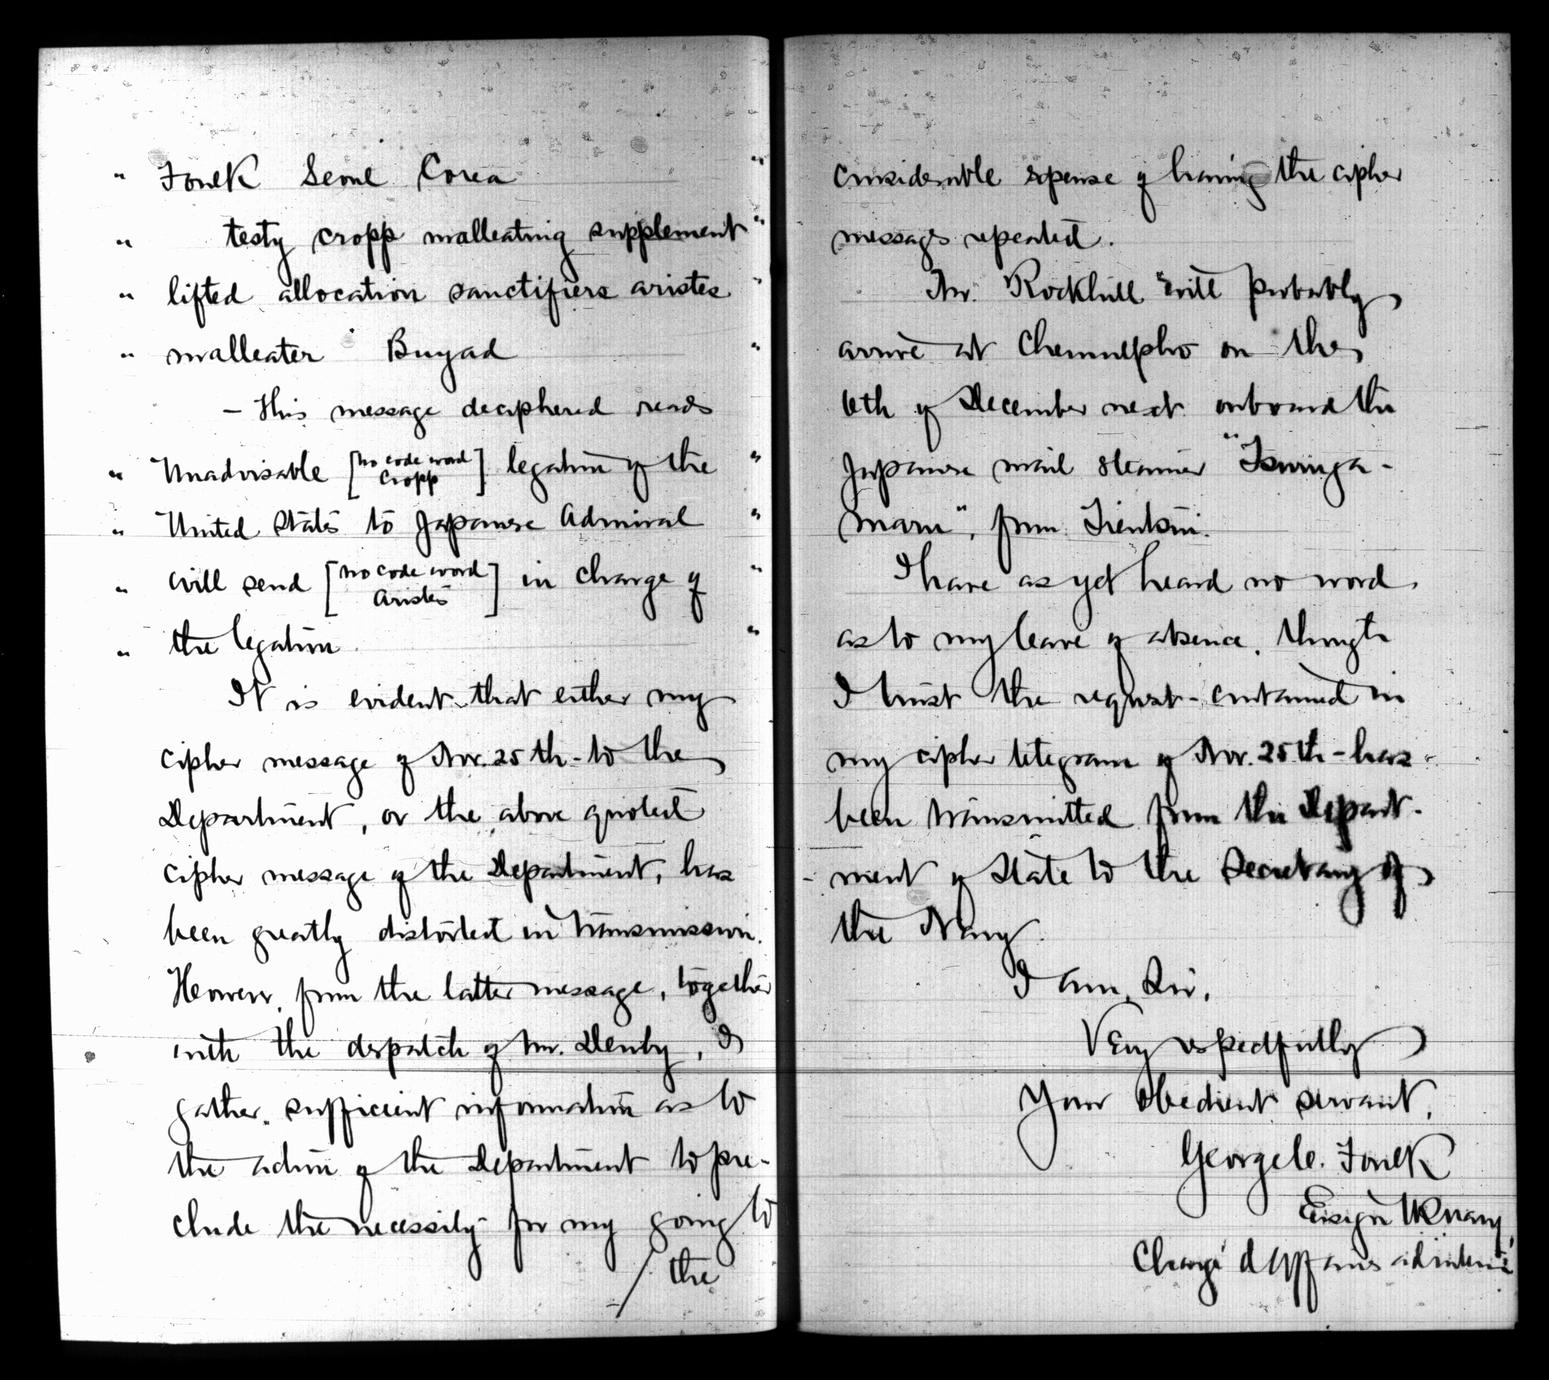 " Foulk Seoul Corea "
" testy cropp malleating supplement "
" lifted allocation sanctifiers aristes "
" malleater Buyad "
– This message deciphered reads
" Unadvisable [no code word cropp] legation of the "
" United States to Japanese Admiral "
" will send [no code word aristes] in charge of "
" the legation "
It is evident that either my
cipher message of Nov. 25th - to the
Department, or the above quoted
cipher message of the Department, has
been greatly distorted in transmission.
However, from the latter message, together
with the dispatch of Mr. Denby, I
gather sufficient information as to
the action of the Department to pre-
clude the necessity for my going to
/ the
considerable expense of having the cipher
messages repeated.
Mr. Rockhill will probably
arrive at Chemulpho on the
6th of December next onboard the
Japanese mail steamer "Tsuruga-
maru", from Tientsin.
I have as yet heard no word
as to my leave of absence, though
I trust the request contained in
my cipher telegram of Nov. 25th - has
been transmitted from the Depart-
ment of State to the Secretary of
the Navy.
I am, Sir,
Very respectfully
Your obedient servant,
George C. Foulk
Ensign U.S. Navy,
Chargé d'Affaires ad interim